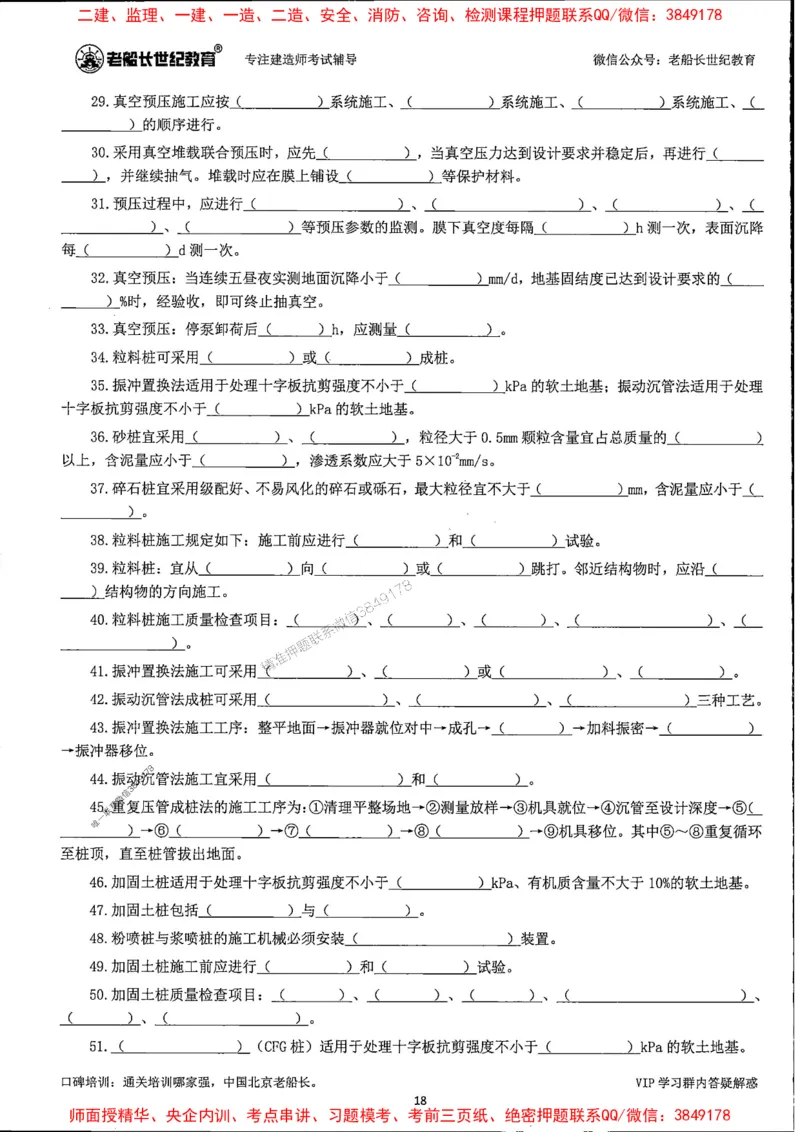 二建、监理、一建、一造、二造、安全、消防、咨询、检测课程押题联系QQ/微信：3849178
老船长世纪教育® 专注建造师考试辅导 微信公众号：老船长世纪教育
29.真空预压施工应按（ ）系统施工、（ ）系统施工、（ ）系统施工、（
）的顺序进行。
30.采用真空堆载联合预压时，应先（ ），当真空压力达到设计要求并稳定后，再进行（
），并继续抽气。堆载时应在膜上铺设（ ）等保护材料。
31.预压过程中，应进行（ ）、（ ）、（ ）、（
）、（ ）等预压参数的监测。膜下真空度每隔（ ）h测一次，表面沉降
每（ ）d测一次。
32.真空预压：当连续五昼夜实测地面沉降小于（ ）mm/d，地基固结度已达到设计要求的（
）%时，经验收，即可终止抽真空。
33.真空预压：停泵卸荷后（ ）h，应测量（ ）。
34.粒料桩可采用（ ）或（ ）成桩。
35.振冲置换法适用于处理十字板抗剪强度不小于（ ）kPa的软土地基；振动沉管法适用于处理
十字板抗剪强度不小于（ ）kPa的软土地基。
36.砂桩宜采用（ ）、（ ），粒径大于0.5mm颗粒含量宜占总质量的（ ）
以上，含泥量应小于（ ），渗透系数应大于5×10⁻²mm/s。
37.碎石桩宜采用级配好、不易风化的碎石或砾石，最大粒径宜不大于（ ）mm，含泥量应小于（
）。
38.粒料桩施工规定如下：施工前应进行（ ）和（ ）试验。
39.粒料桩：宜从（ ）向（ ）或（ ）跳打。邻近结构物时，应沿（
）结构物的方向施工。
40.粒料桩施工质量检查项目：（ ）、（ ）、（ ）、（ ）、（
）。
精准押题联系微信3849178
41.振冲置换法施工可采用（ ）、（ ）或（ ）、（ ）。
42.振动沉管法成桩可采用（ ）、（ ）、（ ）三种工艺。
43.振冲置换法施工工序：整平地面→振冲器就位对中→成孔→（ ）→加料振密→（ ）
→振冲器移位。
44.振动沉管法施工宜采用（ ）和（ ）。
45.重复压管成桩法的施工工序为：①清理平整场地→②测量放样→③机具就位→④沉管至设计深度→⑤（
）→⑥（ ）→⑦（ ）→⑧（ ）→⑨机具移位。其中⑤～⑧重复循环
至桩顶，直至桩管拔出地面。
46.加固土桩适用于处理十字板抗剪强度不小于（ ）kPa、有机质含量不大于10%的软土地基。
47.加固土桩包括（ ）与（ ）。
48.粉喷桩与浆喷桩的施工机械必须安装（ ）装置。
49.加固土桩施工前应进行（ ）和（ ）试验。
50.加固土桩质量检查项目：（ ）、（ ）、（ ）、（ ）、
（ ）、（ ）。
51.（ ）（CFG桩）适用于处理十字板抗剪强度不小于（ ）kPa的软土地基。
口碑培训：通关培训哪家强，中国北京老船长。 VIP学习群内答疑解惑
18
师面授精华、央企内训、考点串讲、习题模考、考前三页纸、绝密押题联系QQ/微信：3849178